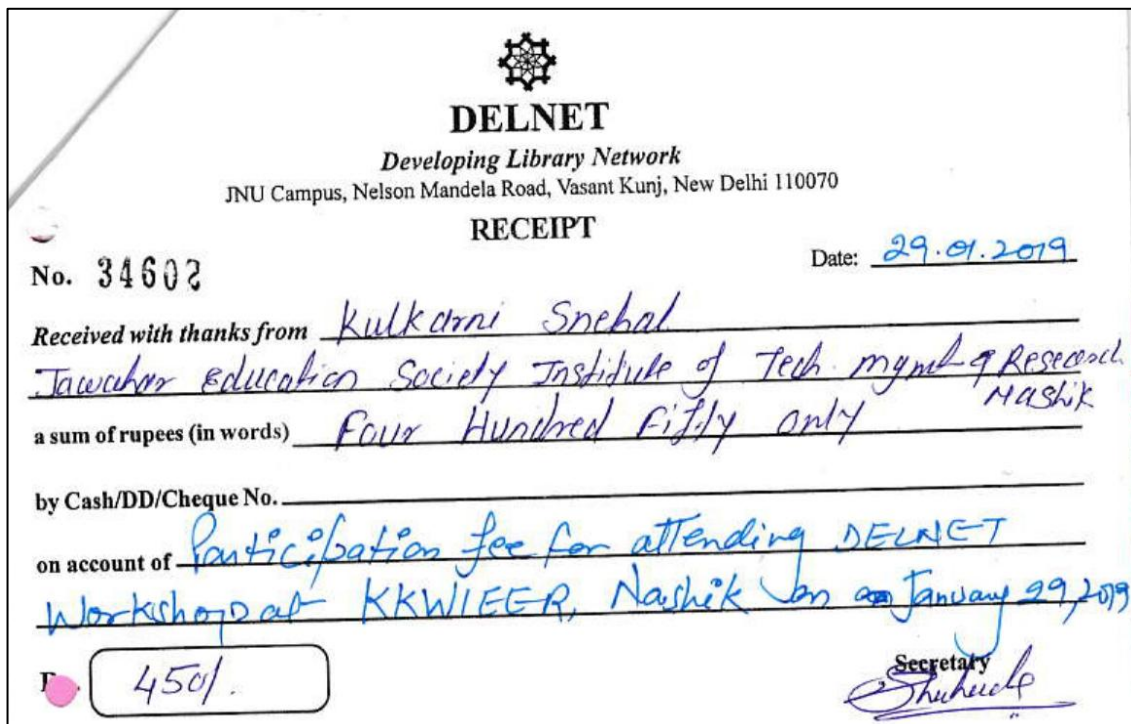 DELNET
Developing Library Network
JNU Campus, Nelson Mandela Road, Vasant Kunj, New Delhi 110070
RECEIPT
No. 34602
Date: 29.01.2019
Received with thanks from Kulkarni Snehal
Jawahar Education Society Institute of Tech. mgmt & Research
Nashik
a sum of rupees (in words) Four Hundred Fifty only
by Cash/DD/Cheque No.
on account of Participation fee for attending DELNET
Workshop at KKWIEER, Nashik on January 29, 2019
450/.
Secretary